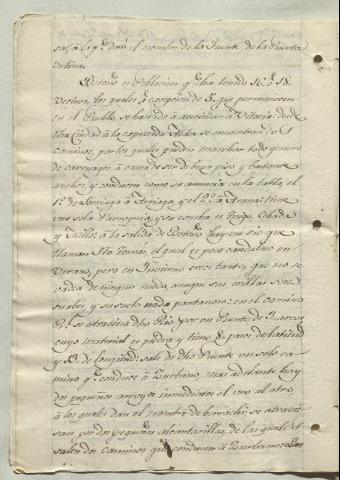 sas, à la q.e dan el nombre de la Fuente de la Puerta
vetina.
es Poblacion q.e ha tenido 16 ó 18
Vecinos, los quales à excepcion de 5, que permanecen
en el Pueblo se han ido à avecindar à Vitoria: desde
dha Ciudad à la expresada Aldea se encuentran dos
caminos, por los quales pueden marchar todo genero
de carruages à causa de ser de buen piso y bastante
anchos, y conducen como se anuncia en la tabla, el
1.º de Gorriaga à Arriaga, y el 2.º à Arana: tiene
una sola Parroquia, y su cosecha es trigo, Cebada
y Trillo: à la salida de hay un rio que
llaman Sto Tomás, el qual es poco caudaloso en
Verano, pero en Invierno crece tanto, que no se
vadea de ningun modo, aunque sus orillas son
suabes, y su suelo nada pantanoso: en el camino
R.l se atraviesa dho Rio, por un Puente de
cuyo material es piedra y tiene 4 pasos de latitud
y 43 de longitud: sale de dho Puente un solo ca-
mino q.e conduce à Durbano; mas adelante hay
dos pequeños arroyos inmediatos el uno al otro
à los quales dan el nombre de berrachi; se atravie-
san por dos pequeñas alcantarillas, de las quales
salen dos caminos que conducen à Durbano: Los